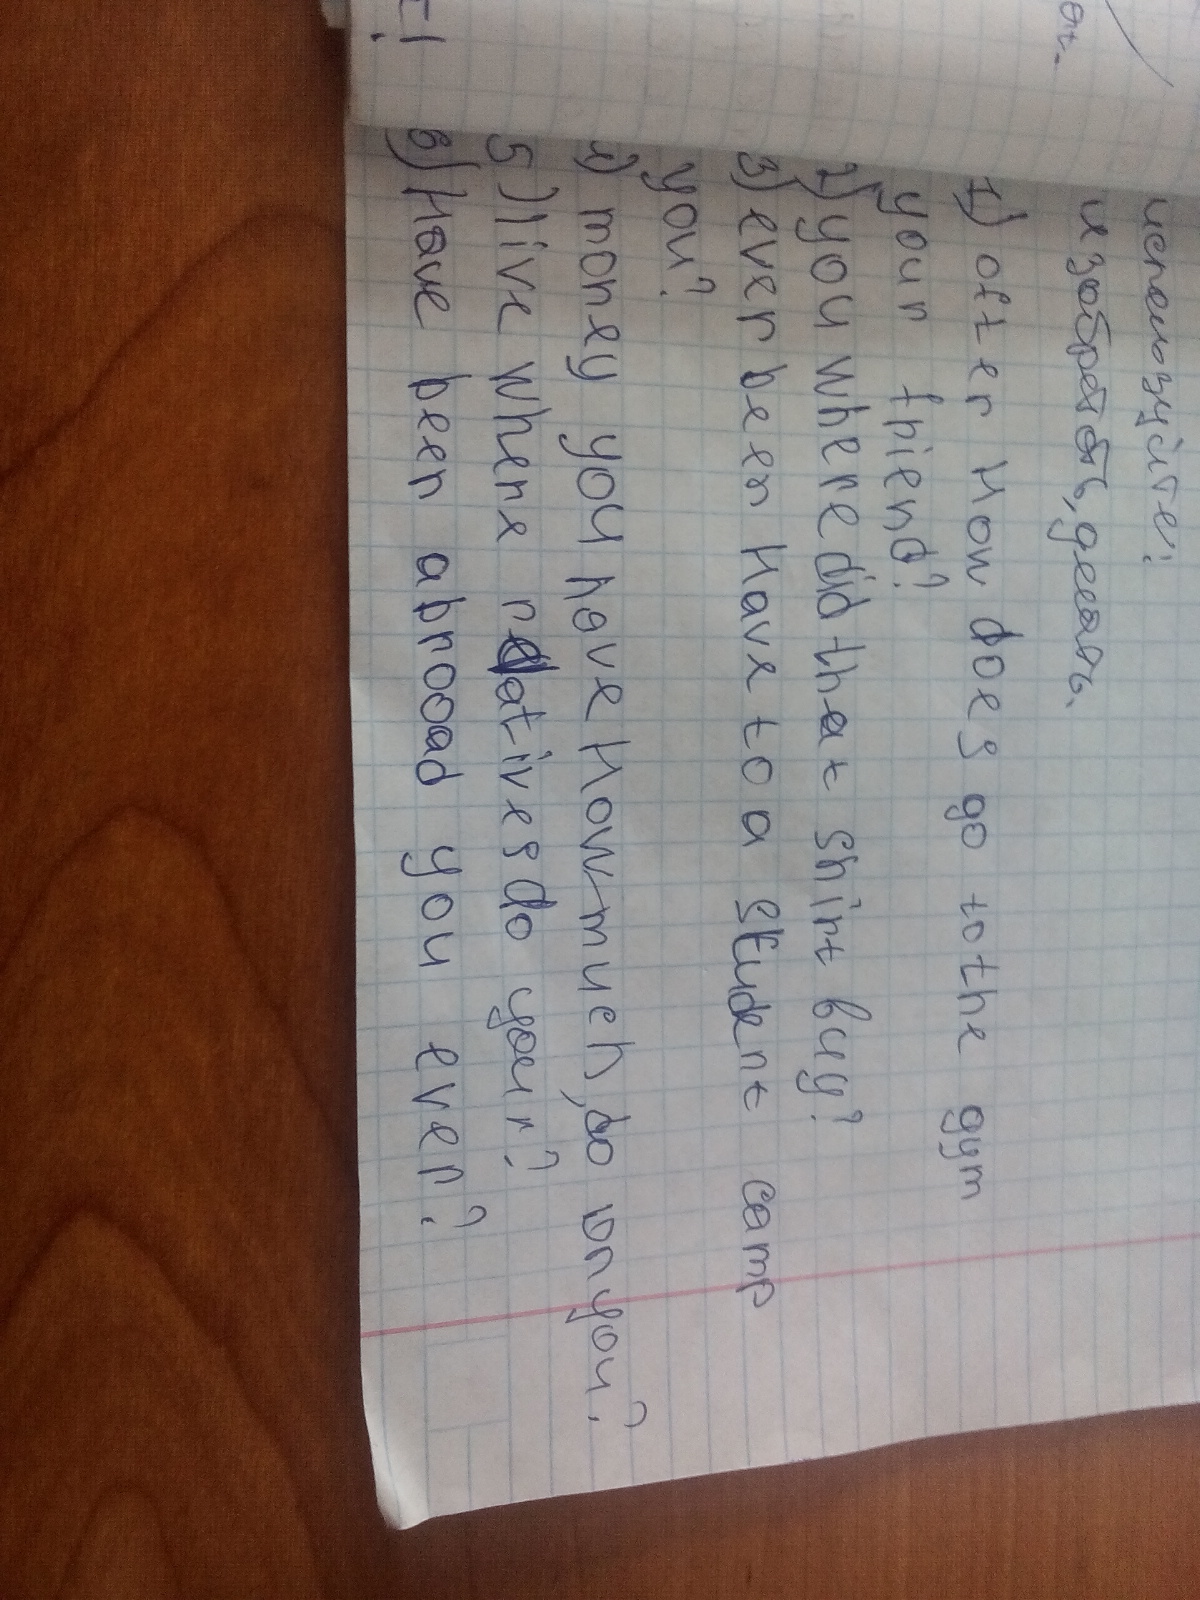 используйте:
изобретать, делать.
1) often How does go to the gym
your friend?
2) you where did that shirt buy?
3) ever been Have to a student camp
you?
4) money you have How much, do on you?
5) live where relatives do your?
6) Have been abrooad you ever?